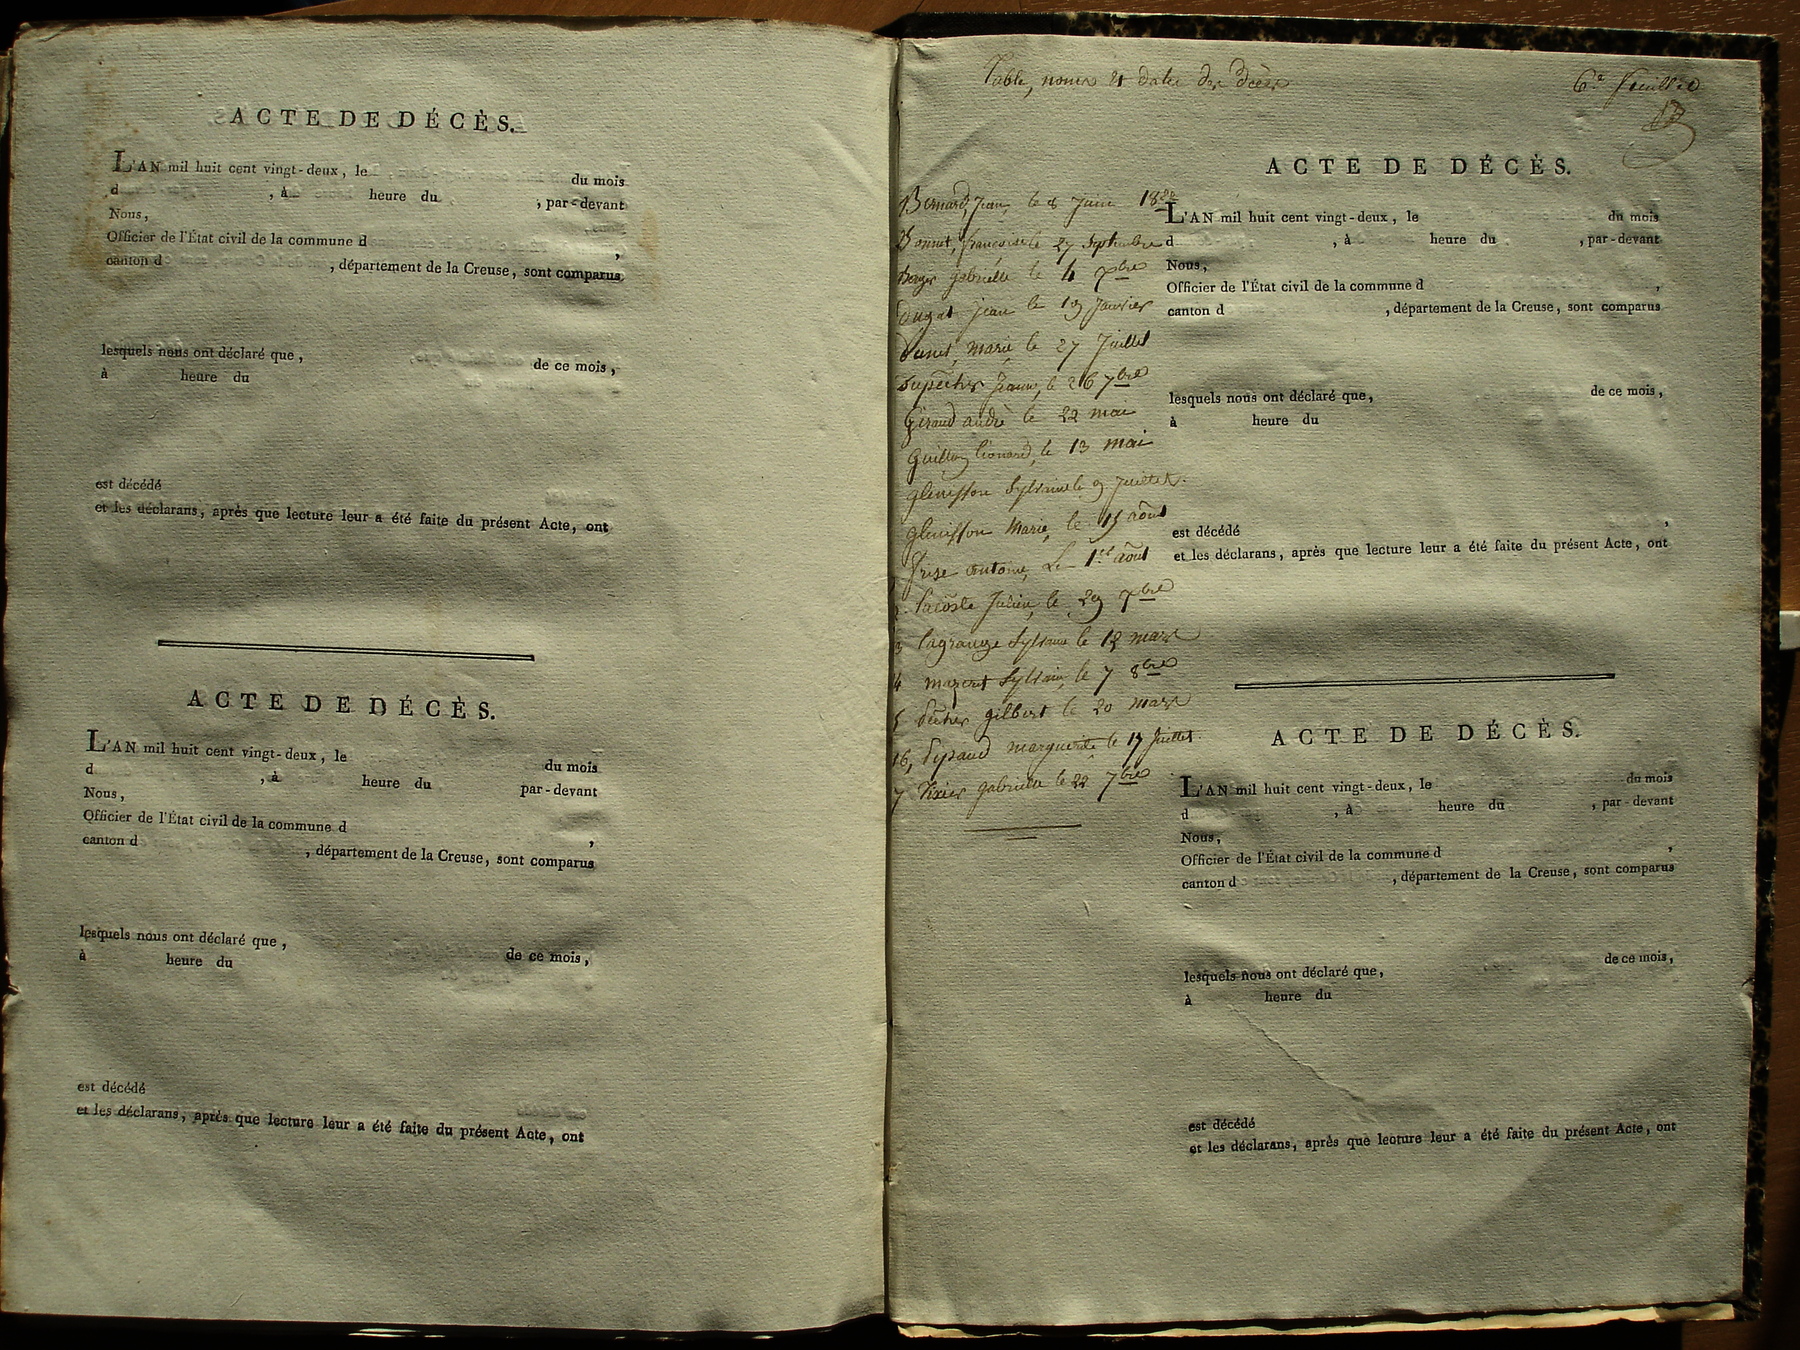 ACTE DE DÉCÈS.
L'AN mil huit cent vingt-deux, le du mois
d , à heure du , par-devant
Nous,
Officier de l'État civil de la commune d ,
canton d , département de la Creuse, sont comparus
lesquels nous ont déclaré que, de ce mois,
à heure du
est décédé
et les déclarans, après que lecture leur a été faite du présent Acte, ont
ACTE DE DÉCÈS.
L'AN mil huit cent vingt-deux, le du mois
d , à heure du par-devant
Nous,
Officier de l'État civil de la commune d ,
canton d , département de la Creuse, sont comparus
lesquels nous ont déclaré que, de ce mois,
à heure du
est décédé
et les déclarans, après que lecture leur a été faite du présent Acte, ont
Table, noms et dates des décès
6e feuillet
Bernard, Jean, le 8 Juin 1822
Bonnet, françoise le 27 Septembre
Berger gabrielle le 4 7bre
jean le 19 Janvier
Dunet, marie le 27 Juillet
Dupêcher Jeanne, le 26 7bre
Giraud andré le 22 mai
Guillon léonard, le 13 mai
glenisson Sylvain le 9 juillet.
glenisson Marie, le 15 août
frise antoine, Le 1er août
lacoste Julien, le 29 7bre
3 lagrange Sylvain le 12 mars
4 mazeret Sylvain, le 7 8bre
5 Pécher gilbert le 20 mars
16, Peynaud marguerite le 17 Juillet.
7 Tixier gabrielle le 22 7bre
ACTE DE DÉCÈS.
L'AN mil huit cent vingt-deux, le du mois
d , à heure du , par-devant
Nous,
Officier de l'État civil de la commune d ,
canton d , département de la Creuse, sont comparus
lesquels nous ont déclaré que, de ce mois,
à heure du
est décédé ,
et les déclarans, après que lecture leur a été faite du présent Acte, ont
ACTE DE DÉCÈS.
L'AN mil huit cent vingt-deux, le du mois
d , à heure du , par-devant
Nous,
Officier de l'État civil de la commune d ,
canton d , département de la Creuse, sont comparus
lesquels nous ont déclaré que, de ce mois,
à heure du
est décédé
et les déclarans, après que lecture leur a été faite du présent Acte, ont